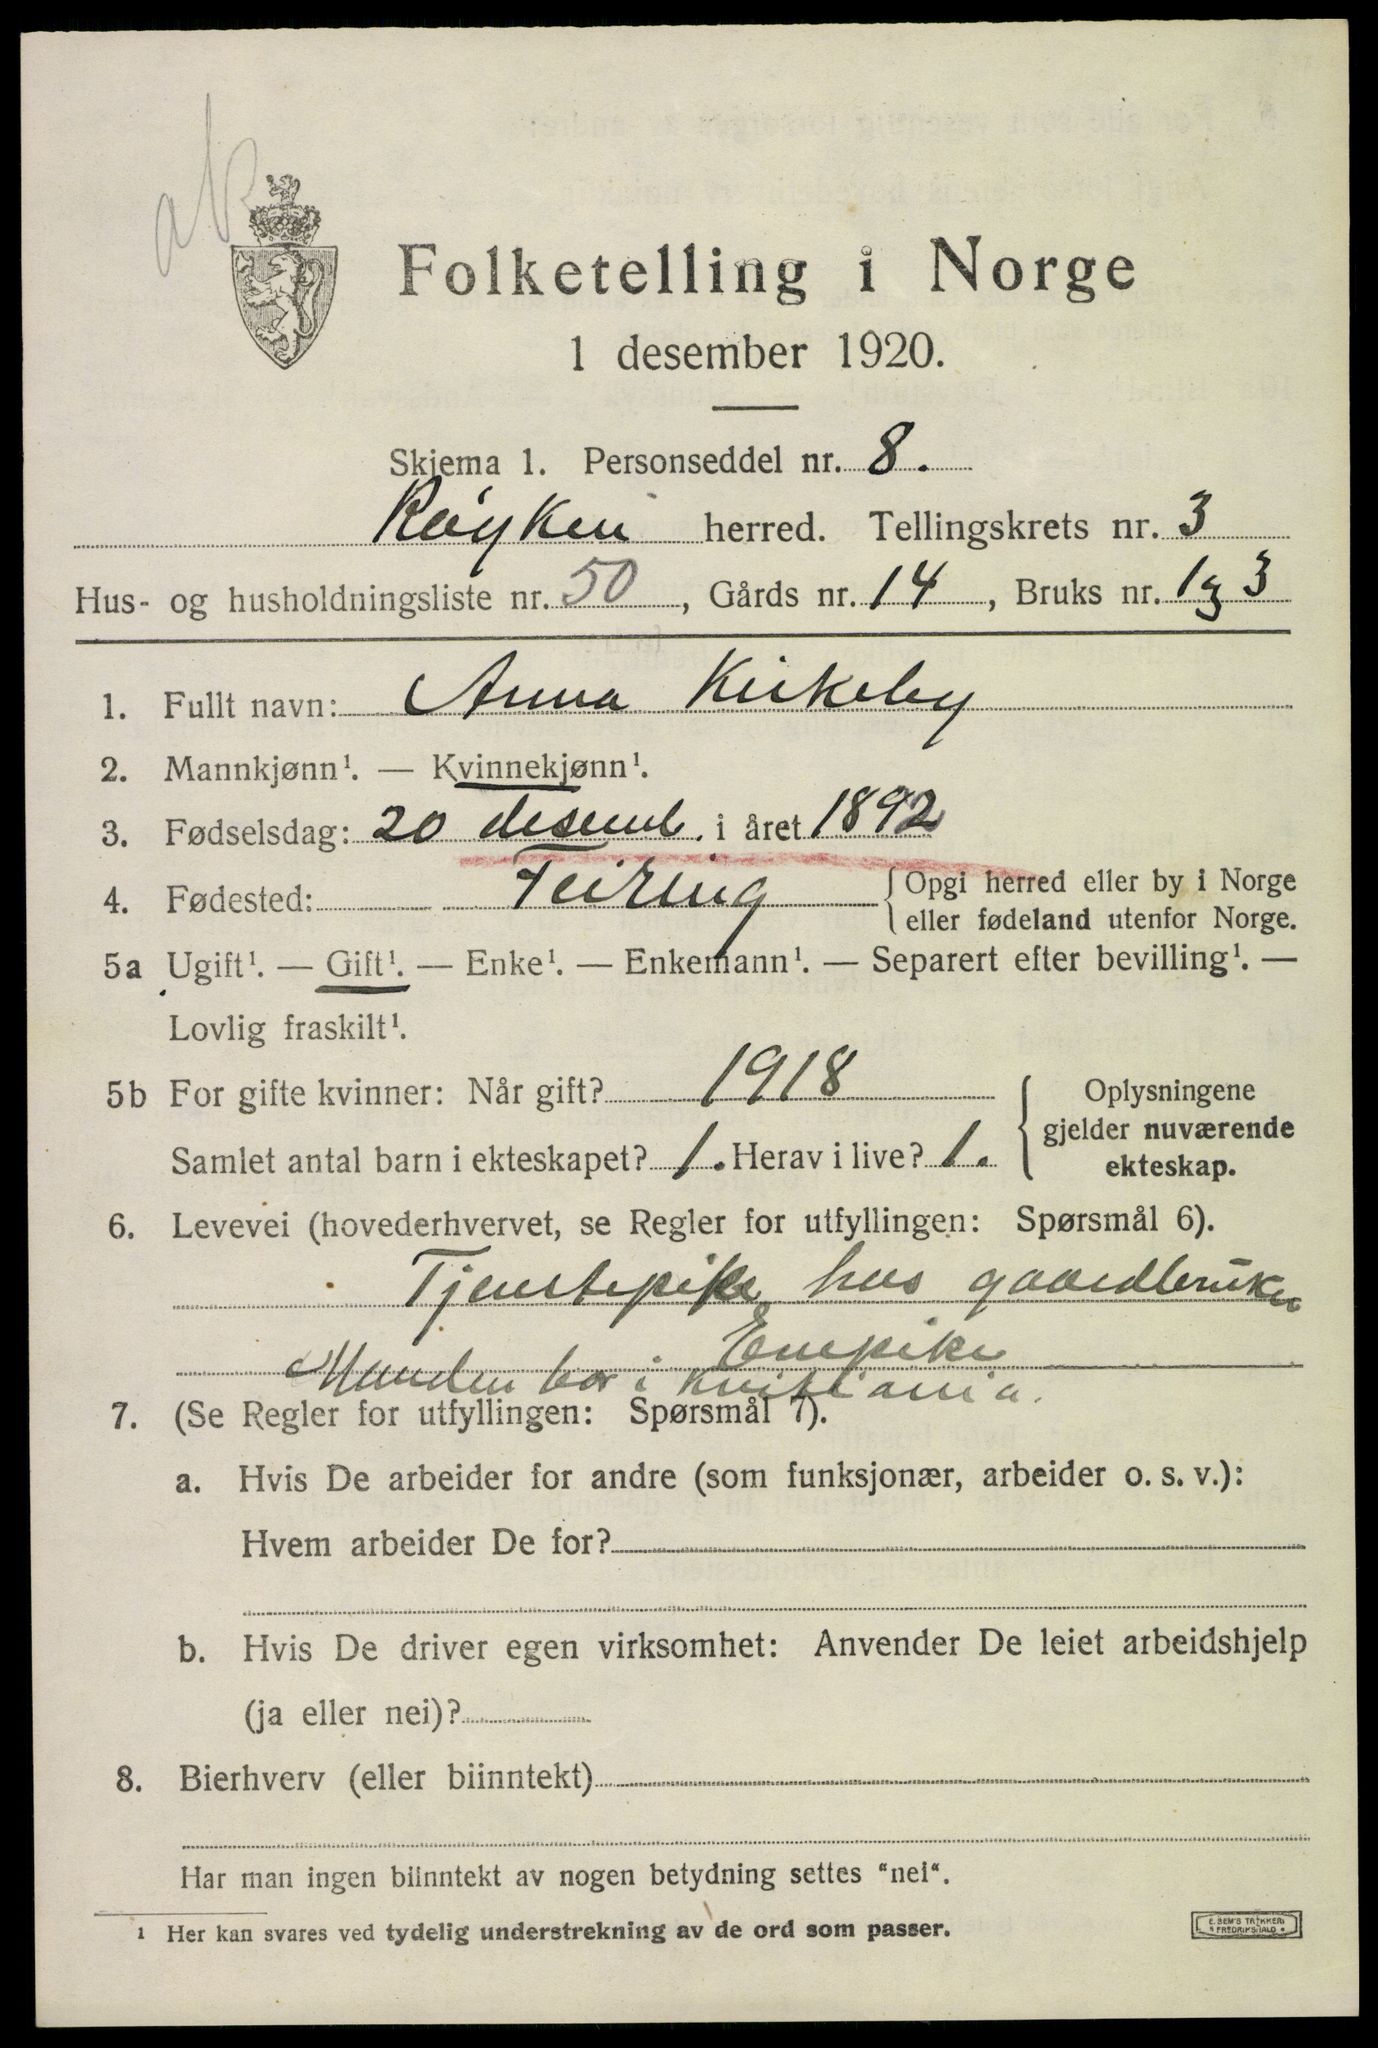 ab
Folketelling i Norge
1 desember 1920.
Skjema 1. Personseddel nr. 8.
Røyken herred. Tellingskrets nr. 3
Hus- og husholdningsliste nr. 50, Gårds nr. 14, Bruks nr. 1 3
1. Fullt navn: Anna Kirkeby
2. Mannkjønn¹. — Kvinnekjønn¹.
3. Fødselsdag: 20 desemb. i året 1892
4. Fødested: Feiring {Opgi herred eller by i Norge
eller fødeland utenfor Norge.
5a Ugift¹. — Gift¹. — Enke¹. — Enkemann¹. — Separert efter bevilling¹. —
Lovlig fraskilt¹.
5b For gifte kvinner: Når gift? 1918
Samlet antal barn i ekteskapet? 1. Herav i live? 1.
{Oplysningene
gjelder nuværende
ekteskap.
6. Levevei (hovederhvervet, se Regler for utfyllingen: Spørsmål 6).
Tjenstepike hos gaardbruker
Enepike
Manden bor i Kristiania.
7. (Se Regler for utfyllingen: Spørsmål 7).
a. Hvis De arbeider for andre (som funksjonær, arbeider o. s. v.):
Hvem arbeider De for?
b. Hvis De driver egen virksomhet: Anvender De leiet arbeidshjelp
(ja eller nei)?
8. Bierhverv (eller biinntekt)
Har man ingen biinntekt av nogen betydning settes "nei".
¹ Her kan svares ved tydelig understrekning av de ord som passer.
E. SEM'S TRYKKERI
FREDRIKSHALD